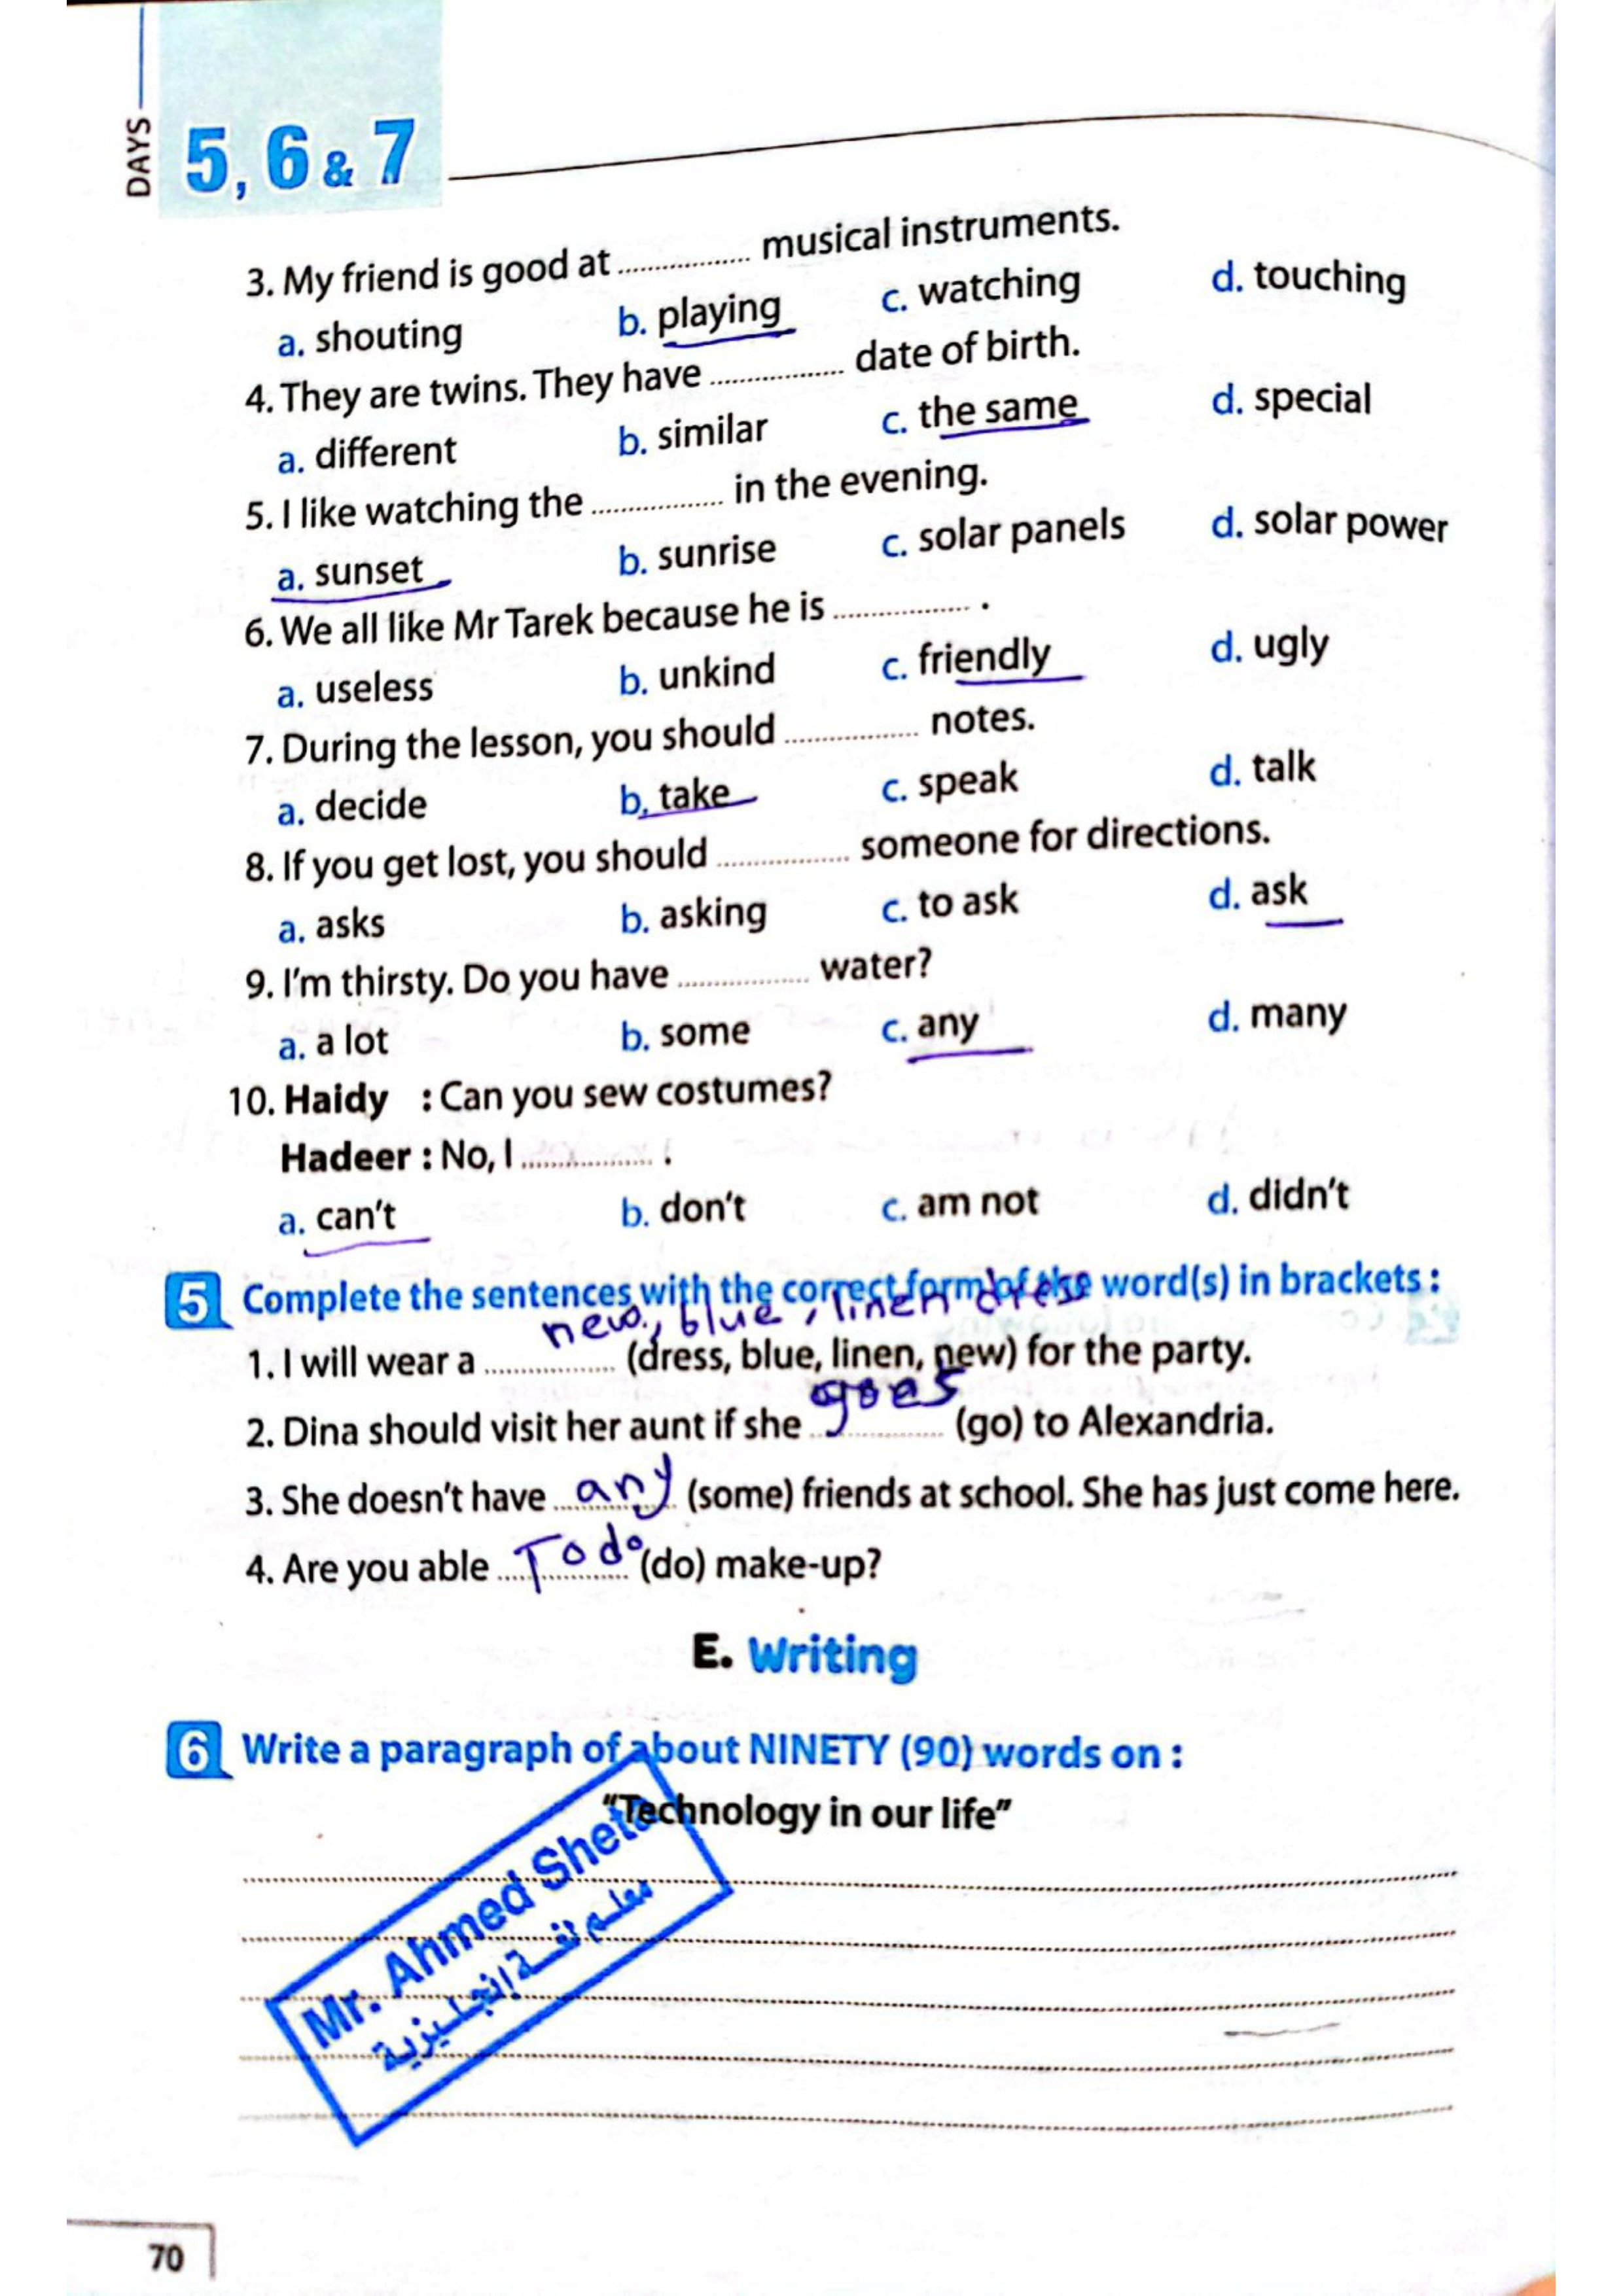 DAYS
5, 6 & 7
3. My friend is good at ................ musical instruments.
a. shouting b. playing c. watching d. touching
4. They are twins. They have ................ date of birth.
a. different b. similar c. the same d. special
5. I like watching the ................ in the evening.
a. sunset b. sunrise c. solar panels d. solar power
6. We all like Mr Tarek because he is ................ .
a. useless b. unkind c. friendly d. ugly
7. During the lesson, you should ................ notes.
a. decide b. take c. speak d. talk
8. If you get lost, you should ................ someone for directions.
a. asks b. asking c. to ask d. ask
9. I'm thirsty. Do you have ................ water?
a. a lot b. some c. any d. many
10. Haidy : Can you sew costumes?
Hadeer : No, I ................ .
a. can't b. don't c. am not d. didn't
5 Complete the sentences with the correct form of the word(s) in brackets :
new, blue, linen dress
1. I will wear a ................ (dress, blue, linen, new) for the party.
2. Dina should visit her aunt if she goes (go) to Alexandria.
3. She doesn't have any (some) friends at school. She has just come here.
4. Are you able To do (do) make-up?
E. Writing
6 Write a paragraph of about NINETY (90) words on :
"Technology in our life"
Mr. Ahmed Sheta
معلم لغة إنجليزية
70